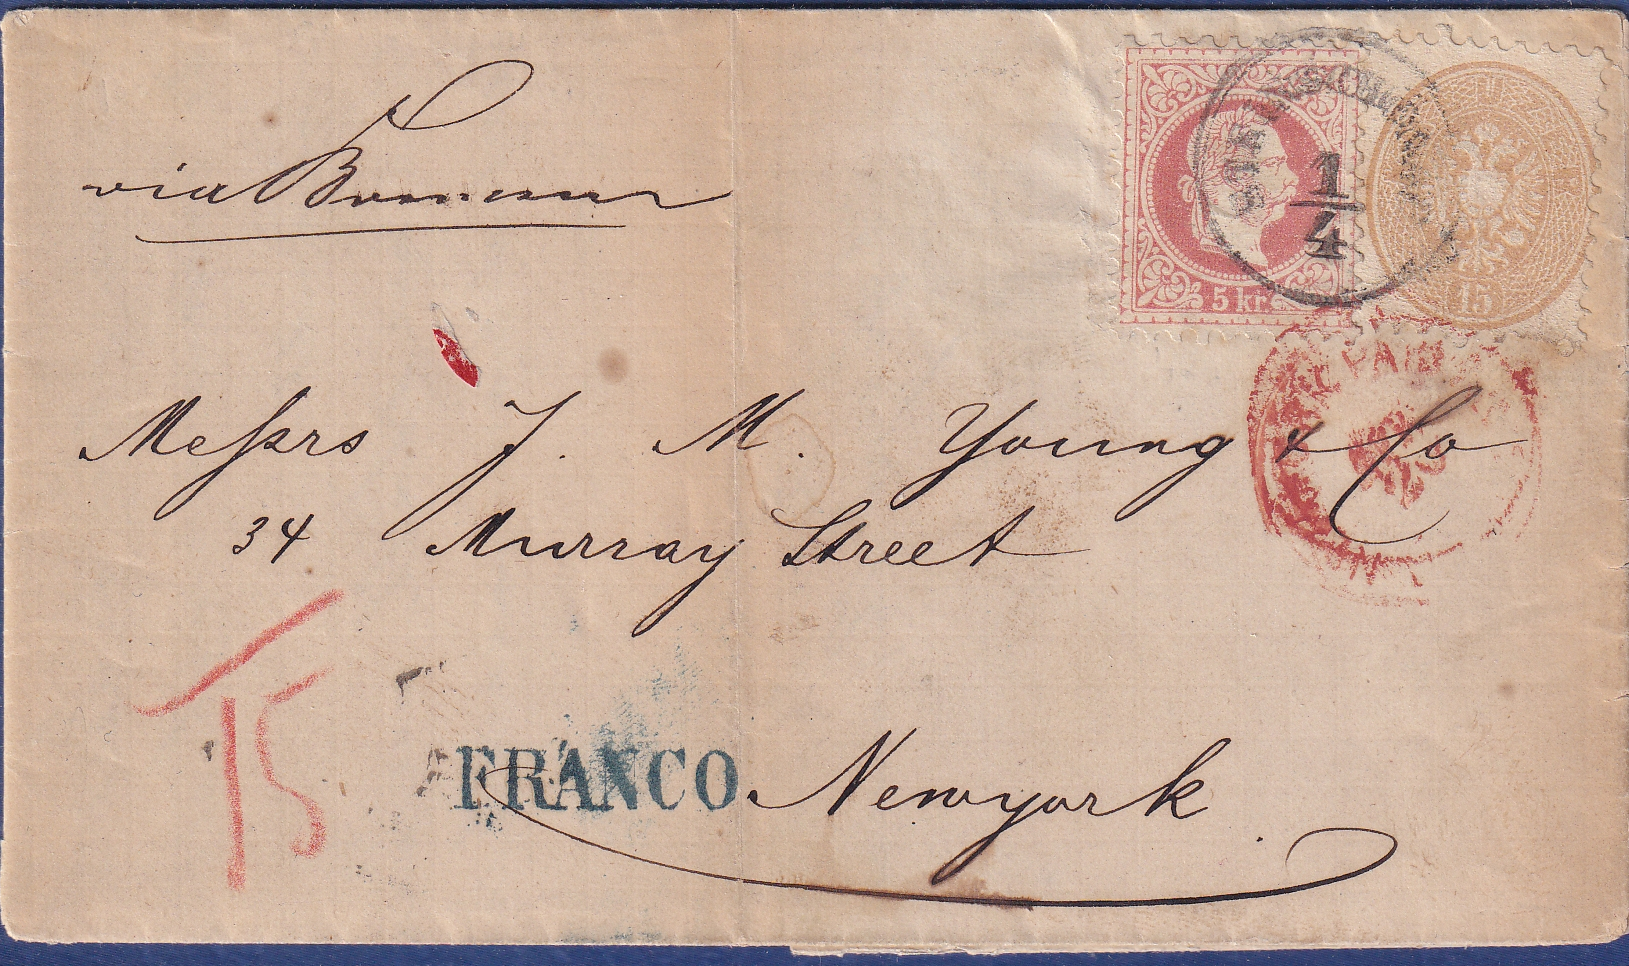 via Bremen
5 kr.
15
1/4
PAID
Messrs J. M. Young & Co
34 Murray Street
15
FRANCO
Newyork